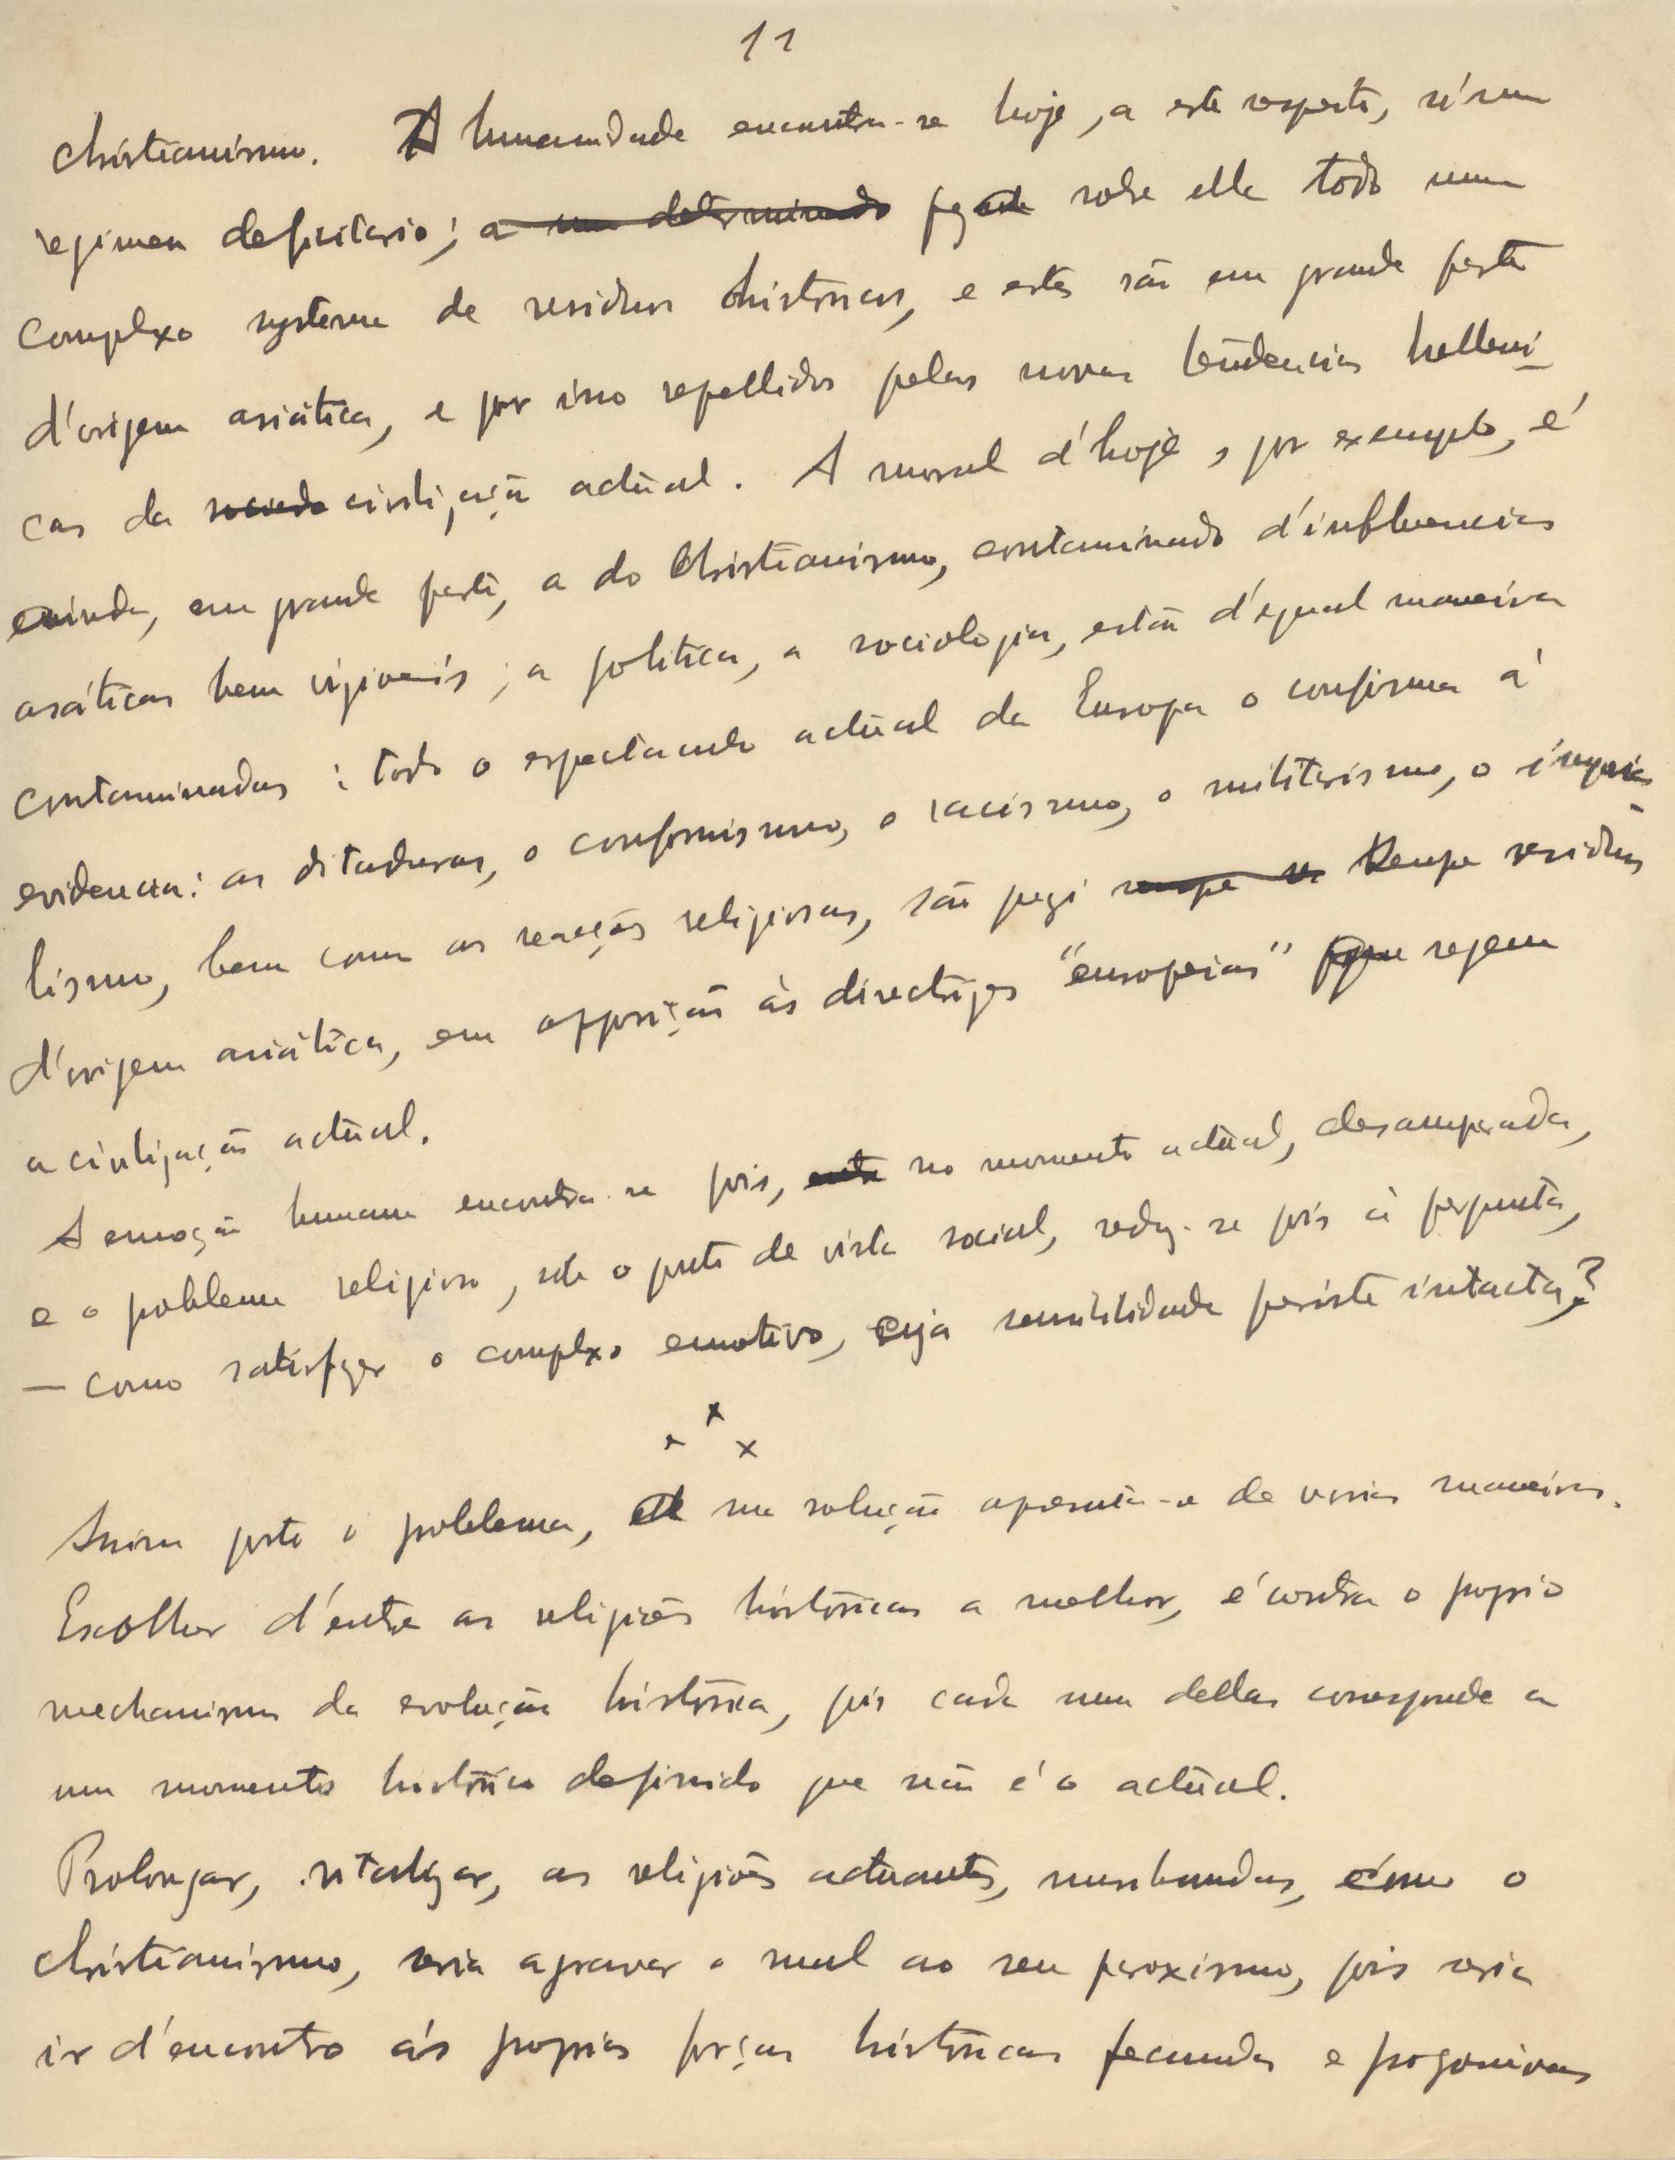 11
christianismo. A humanidade encontra-se hoje, a este respeito, n'um
regimen deficitario; a um determinado sobre ella todo um
complexo systema de residuos historicos, e estes são em grande parte
d'origem asiática, e por isso repellidos pelas novas tendencias helleni-
cas da civilização actual. A moral d'hoje, por exemplo, é
ainda, em grande parte, a do Christianismo, contaminado d'influencias
asiáticas bem visiveis; a politica, a sociologia, estão d'egual maneira
contaminadas: todo o espectaculo actual da Europa o confirma á
evidencia: as ditaduras, o conformismo, o racismo, o militarismo, o imperia-
lismo, bem como as reacções religiosas, são sempre residuos
d'origem asiática, em opposição ás directrizes "europeias" que regem
a civilização actual.
A emoção humana encontra-se pois, no momento actual, desamparada,
e o problema religioso, sob o ponto de vista social, reduz-se pois á pergunta,
— como satisfazer o complexo emotivo, cuja sensibilidade persiste intacta?
x x x
Assim posto o problema, sua solução apresenta-se de varias maneiras.
Escolher d'entre as religiões históricas a melhor, é contra o proprio
mechanismo da evolução histórica, pois cada uma dellas corresponde a
um momento histórico definido que não é o actual.
Prolongar, vitalizar, as religiões actuantes, moribundas, como o
christianismo, seria agravar o mal ao seu paroxismo, pois seria
ir d'encontro ás proprias forças históricas fecundas e progressivas